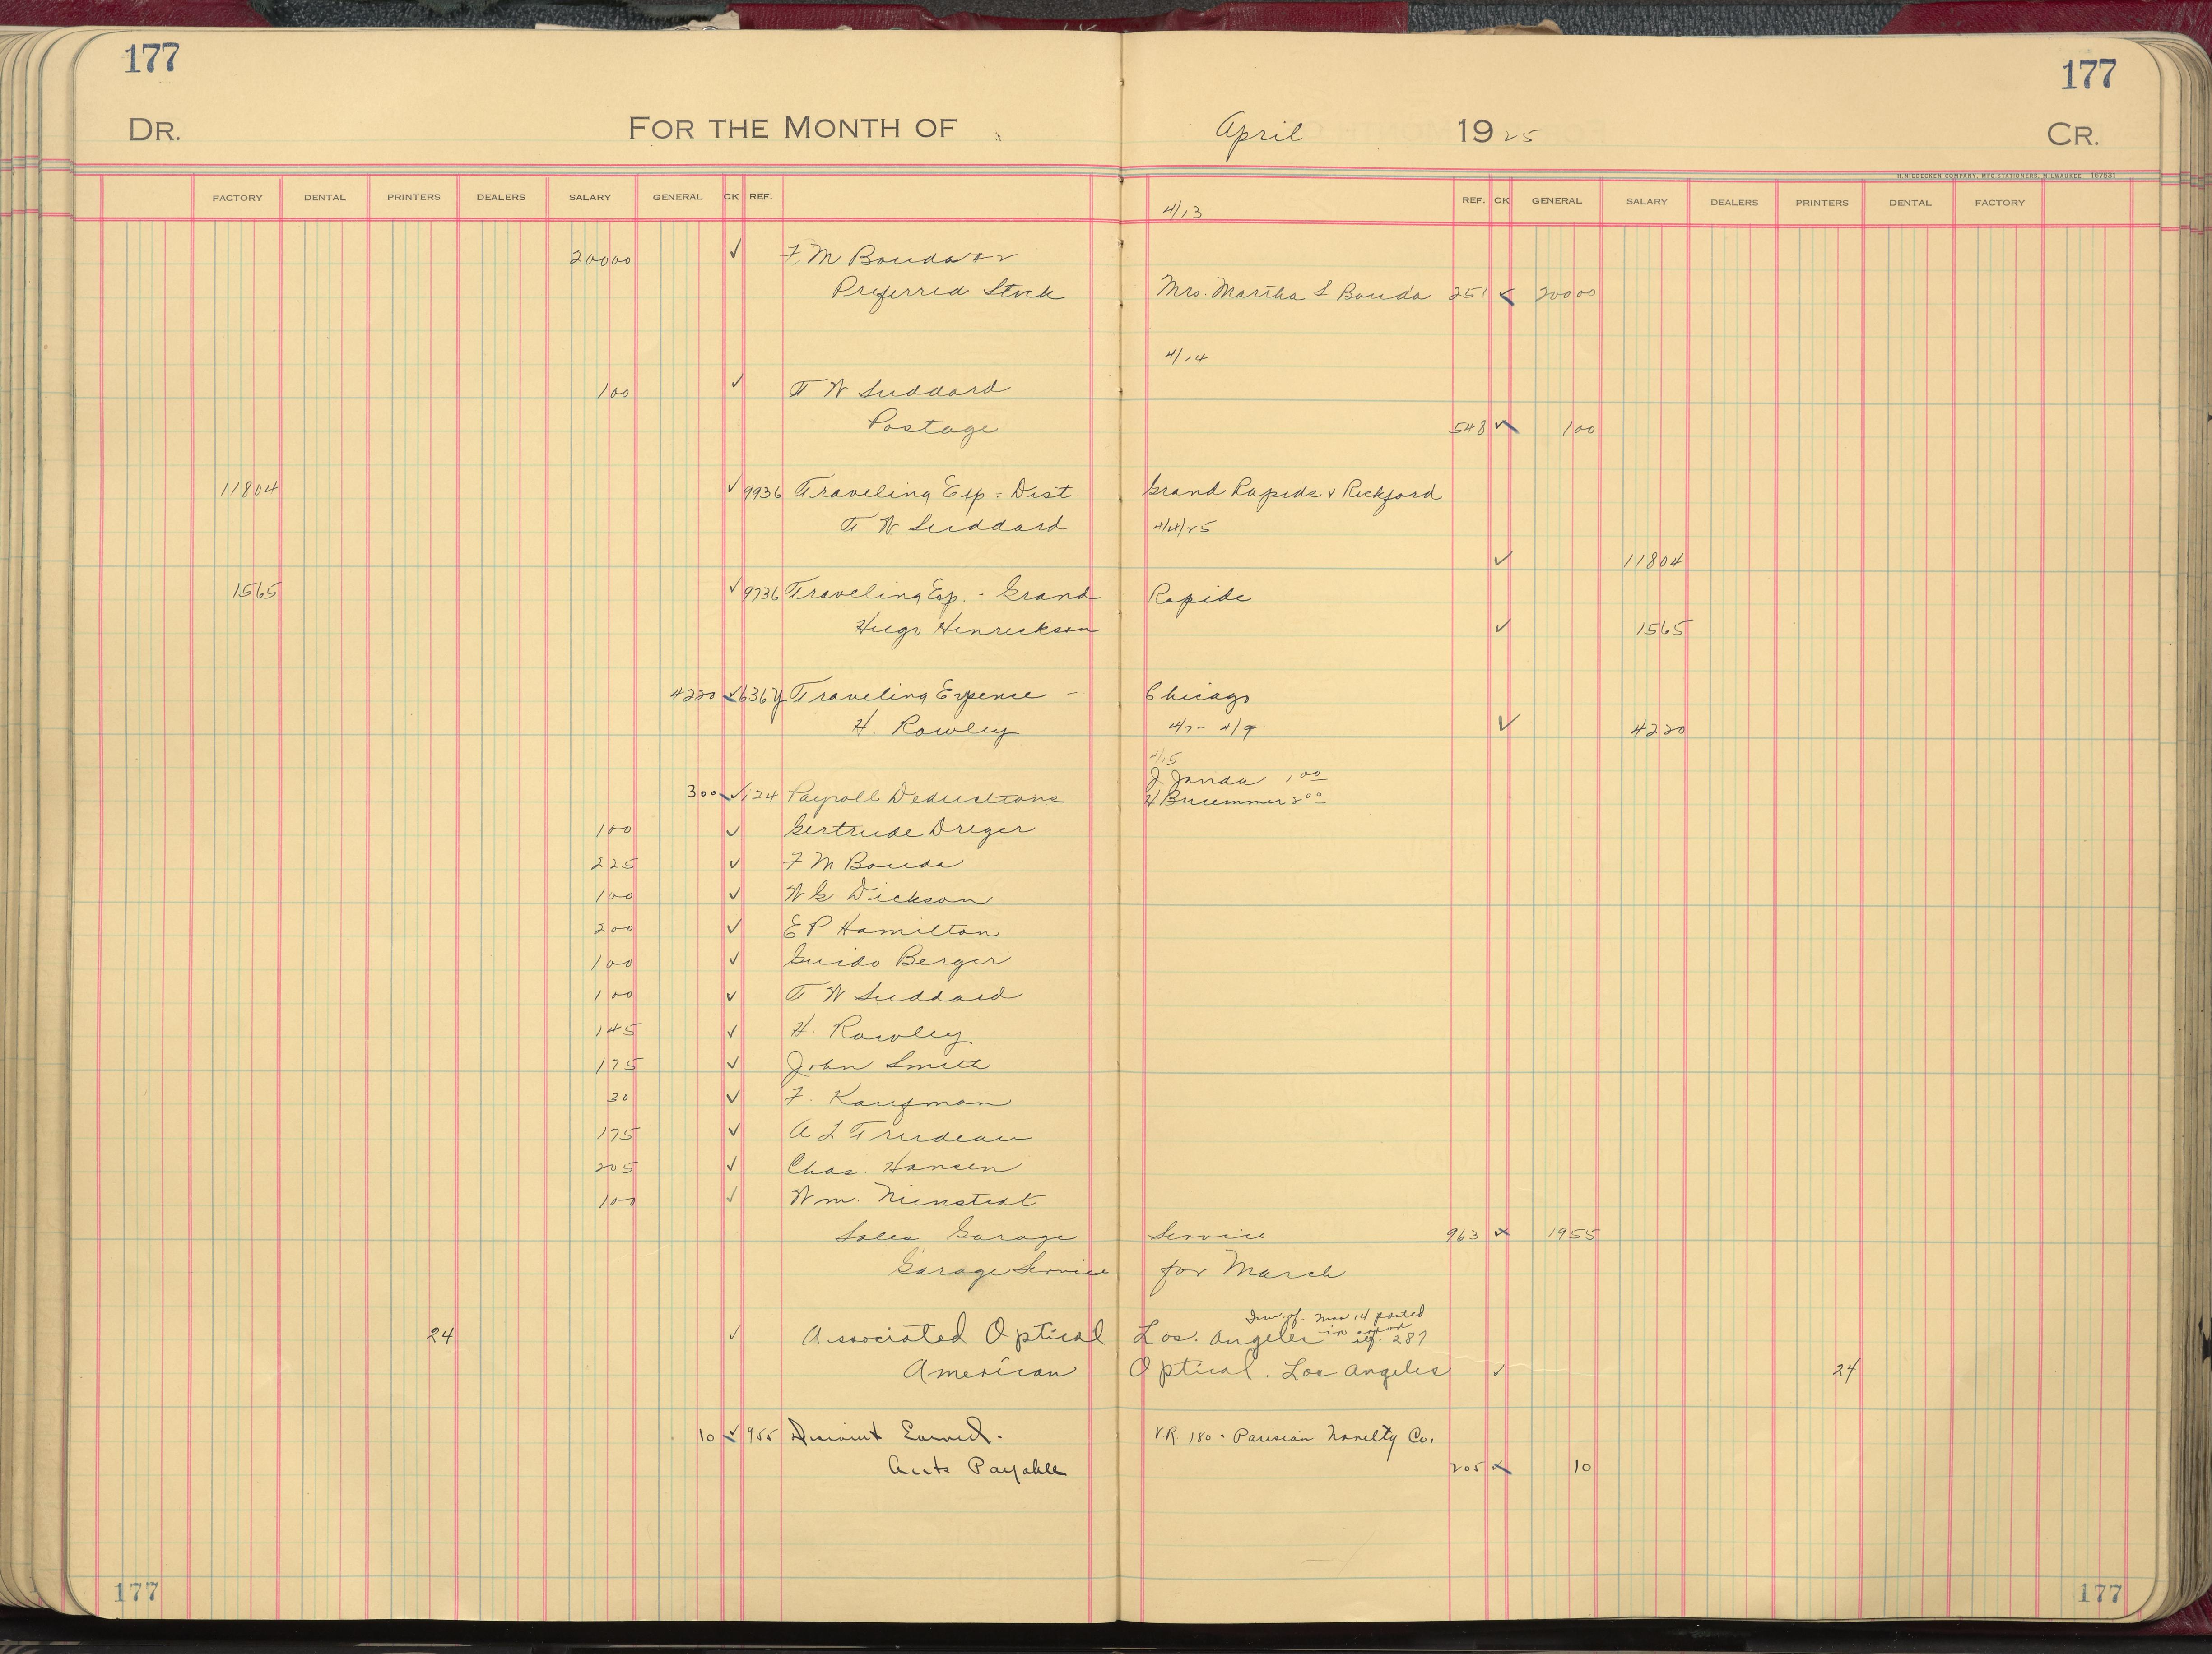 177 177
DR. FOR THE MONTH OF April 1925 CR.
H. NIEDECKEN COMPANY, MFG. STATIONERS, MILWAUKEE 167531
FACTORY DENTAL PRINTERS DEALERS SALARY GENERAL CK REF. REF. CK GENERAL SALARY DEALERS PRINTERS DENTAL FACTORY
4/13
20000 ✓ F M Bouda
Preferred Stock Mrs. Martha S Bouda 251 ✓ 20000
4/14
100 ✓ T W Suddard
Postage 548 ✓ 100
11804 ✓ 9936 Traveling Exp - Dist. Grand Rapids & Rockford
T W Suddard 4/4/25
✓ 11804
1565 ✓ 9736 Traveling Exp. - Grand Rapids
Hugo Henrickson ✓ 1565
4220 ✓ 636Y Traveling Expense - Chicago
H. Rowley 4/7 - 4/9 ✓ 4220
4/15
J. Janda 1 00
300 ✓ 124 Payroll Deductions H Bruemmer 2 00
100 ✓ Gertrude Dreger
225 ✓ F M Bouda
100 ✓ W G Dickson
200 ✓ E P Hamilton
100 ✓ Guido Berger
100 ✓ T W Suddard
145 ✓ H. Rowley
175 ✓ John Smith
30 ✓ F. Kaufman
175 ✓ A L Trudeau
205 ✓ Chas. Hansen
100 ✓ Wm. Nienstedt
Sales Garage Service 963 ✓ 1955
Garage Service for March
Inv. of Mar 14 posted
in error
24 ✓ Associated Optical Los. Angeles 287
American Optical. Los Angeles ✓ 24
10 ✓ 955 Discount Earned. V.R. 180 - Parisian Novelty Co.
Accts Payable 205 ✓ 10
177 177